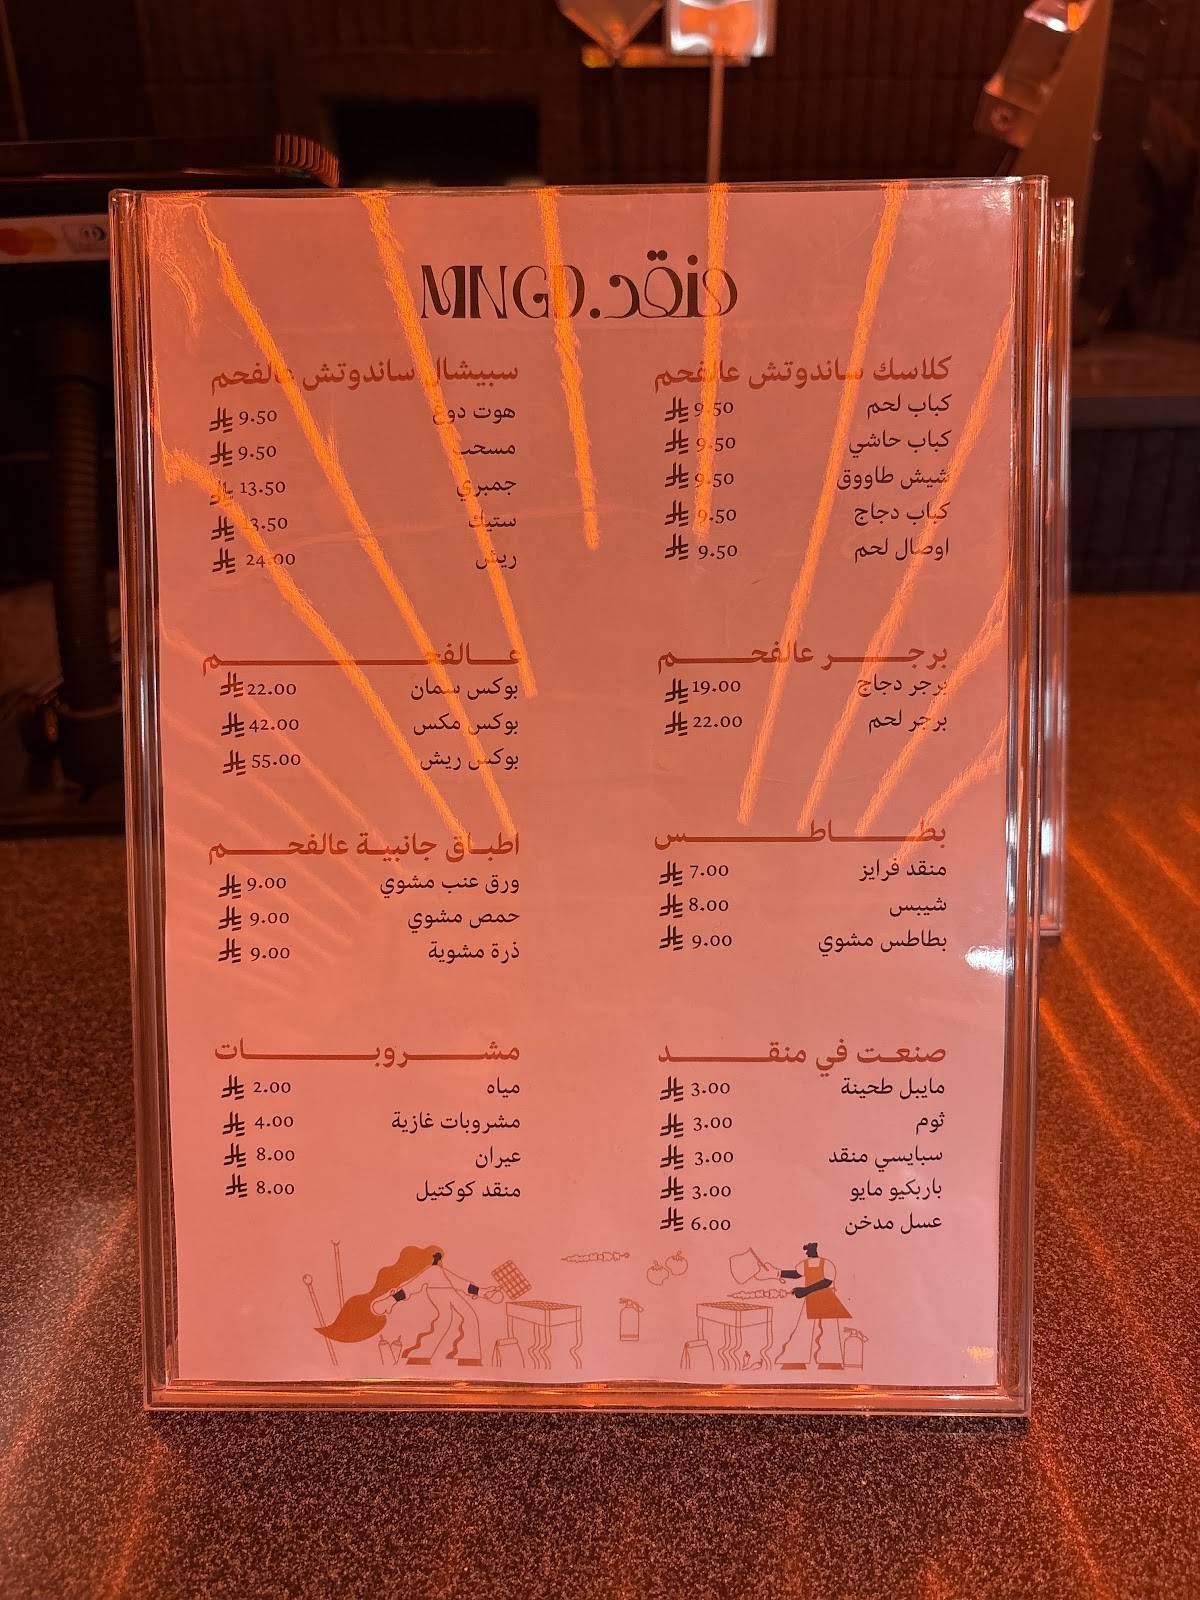 MNGD.منقد
كلاسك ساندوتش عالفحم
كباب لحم 9.50
كباب حاشي 9.50
شيش طاووق 9.50
كباب دجاج 9.50
اوصال لحم 9.50
سبيشال ساندوتش عالفحم
هوت دوغ 9.50
مسحب 9.50
جمبري 13.50
ستيك 13.50
ريش 24.00
برجر عالفحم
برجر دجاج 19.00
برجر لحم 22.00
عالفحم
بوكس سمان 22.00
بوكس مكس 42.00
بوكس ريش 55.00
بطاطس
منقد فرايز 7.00
شيبس 8.00
بطاطس مشوي 9.00
اطباق جانبية عالفحم
ورق عنب مشوي 9.00
حمص مشوي 9.00
ذرة مشوية 9.00
صنعت في منقد
مايبل طحينة 3.00
ثوم 3.00
سبايسي منقد 3.00
باربكيو مايو 3.00
عسل مدخن 6.00
مشروبات
مياه 2.00
مشروبات غازية 4.00
عيران 8.00
منقد كوكتيل 8.00